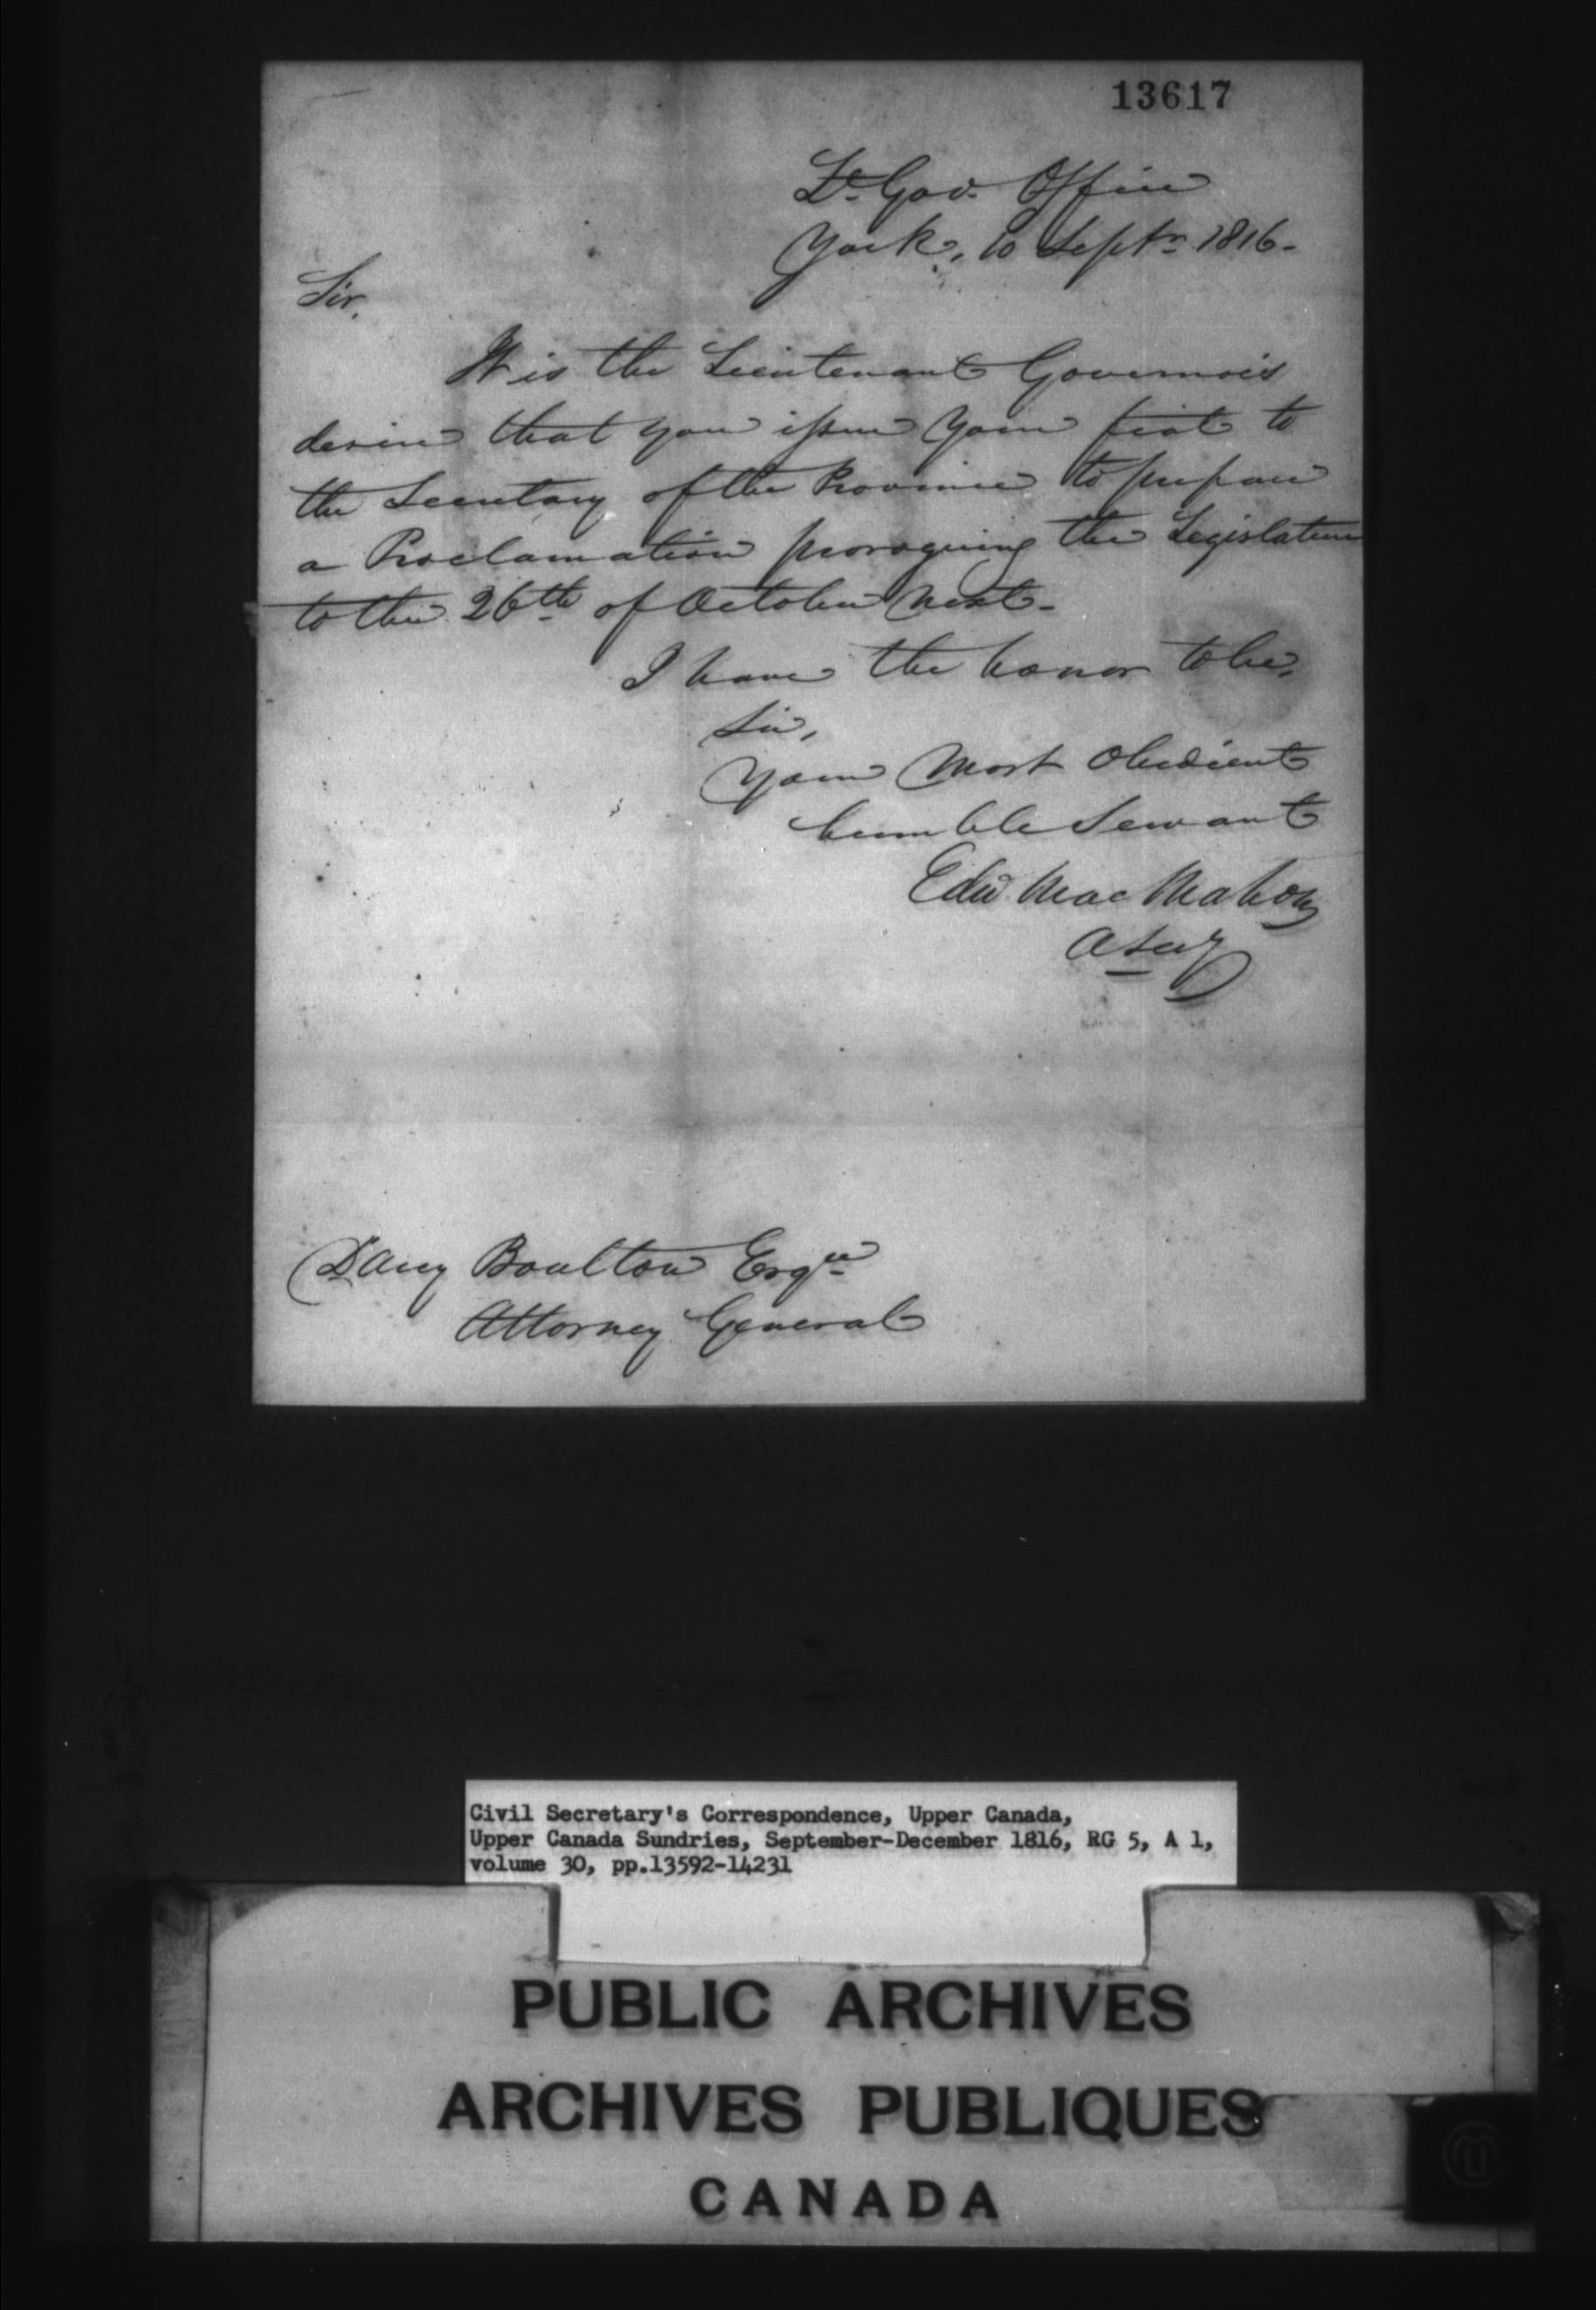 13617
Lt. Gov. Office
York, 10 Septr. 1816-
Sir,
It is the Lieutenant Governor's
desire that you issue your fiat to
the Secretary of the Province to prepare
a Proclamation proroguing the Legislature
to the 26th of October next-
I have the honor to be,
Sir,
Your Most Obedient
humble Servant
Edw MacMahon
A Secy
D'Arcy Boulton Esqre
Attorney General
Civil Secretary's Correspondence, Upper Canada,
Upper Canada Sundries, September-December 1816, RG 5, A 1,
volume 30, pp.13592-14231
PUBLIC ARCHIVES
ARCHIVES PUBLIQUES
CANADA